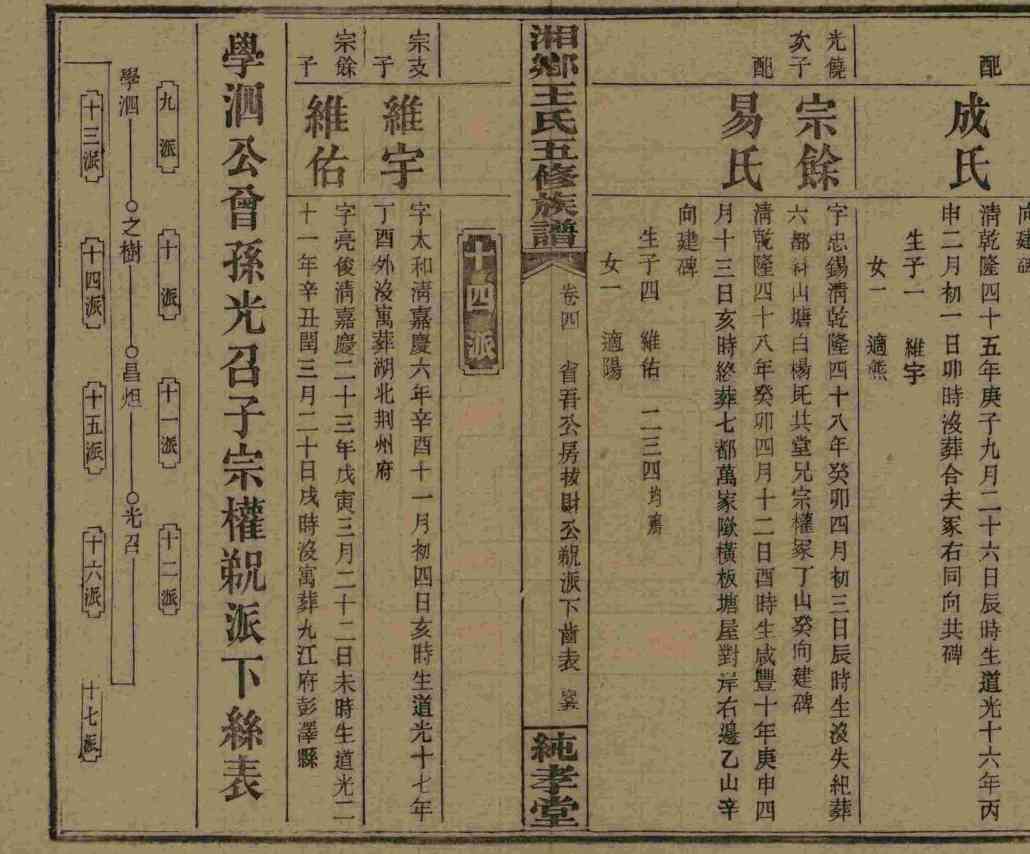 配
成氏
向建碑
清乾隆四十五年庚子九月二十六日辰時生道光十六年丙
申二月初一日卯時沒葬合夫冢右同向共碑
生子一 維宇
女一 適熊
光饒
次子
宗餘
字忠錫清乾隆四十八年癸卯四月初三日辰時生沒失紀葬
六都 山塘白楊坵共堂兄宗權冢丁山癸向建碑
配
易氏
清乾隆四十八年癸卯四月十二日酉時生咸豐十年庚申四
月十三日亥時終葬七都萬家 橫板塘屋對岸右邊乙山辛
向建碑
生子四 維佑 二三四均殤
女一 適陽
湘鄉王氏五修族譜
卷四 省吾公房 財公 派下齒表
純孝堂
十四派
宗支
子
維宇
字太和清嘉慶六年辛酉十一月初四日亥時生道光十七年
丁酉外沒寓葬湖北荆州府
宗餘
子
維佑
字亮俊清嘉慶二十三年戊寅三月二十二日未時生道光二
十一年辛丑閏三月二十日戌時沒寓葬九江府彭澤縣
學泗公曾孫光召子宗權 派下絲表
九派 十派 十一派 十二派
學泗 之樹 昌炟 光召
十三派 十四派 十五派 十六派 十七派